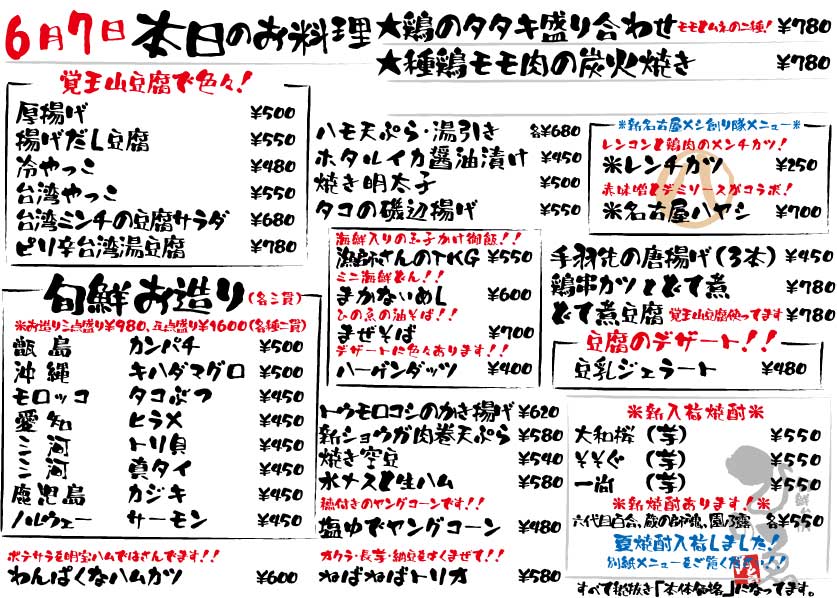 6月7日 本日のお料理
★鶏のタタキ盛り合わせ モモとムネの二種! ¥780
★種鶏モモ肉の炭火焼き ¥780
覚王山豆腐で色々!
厚揚げ ¥500
揚げだし豆腐 ¥550
冷やっこ ¥480
台湾やっこ ¥550
台湾ミンチの豆腐サラダ ¥680
ピリ辛台湾湯豆腐 ¥780
旬鮮お造り(各三貫)
※お造り三点盛り¥980、五点盛り¥1600(各種二貫)
甑島 カンパチ ¥500
沖縄 キハダマグロ ¥500
モロッコ タコぶつ ¥450
愛知 ヒラメ ¥450
三河 トリ貝 ¥450
三河 真タイ ¥450
鹿児島 カジキ ¥450
ノルウェー サーモン ¥450
ポテサラを明宝ハムではさんでます!!
わんぱくなハムカツ ¥600
ハモ天ぷら・湯引き 各¥680
ホタルイカ醤油漬け ¥450
焼き明太子 ¥500
タコの磯辺揚げ ¥550
海鮮入りの玉子かけ御飯!!
漁師さんのTKG ¥550
ミニ海鮮どん!!
まかないめし ¥600
ひの魚の油そば!!
まぜそば ¥700
デザートに色々あります!!
ハーゲンダッツ ¥400
トウモロコシのかき揚げ ¥620
新ショウガ肉巻天ぷら ¥580
焼き空豆 ¥540
水ナスと生ハム ¥580
穂付きのヤングコーンです!!
塩ゆでヤングコーン ¥480
オクラ・長芋・納豆をまぜて!!
ねばねばトリオ ¥580
※新名古屋メシ創り隊メニュー※
レンコンと鶏肉のメンチカツ!
※レンチカツ ¥250
赤味噌とデミソースがコラボ!
※名古屋ハヤシ ¥700
手羽先の唐揚げ(3本) ¥450
鶏串カツとどて煮 ¥780
どて煮豆腐 覚王山豆腐使ってます ¥780
豆腐のデザート!!
豆乳ジェラート ¥480
※新入荷焼酎※
大和桜(芋) ¥550
そそぐ(芋) ¥550
一尚(芋) ¥550
※新焼酎あります!※
六代目百合、蔵の師魂、園乃露 各¥550
夏焼酎入荷しました!
別紙メニューをご覧ください!!
すべて税抜き「本体価格」になってます。